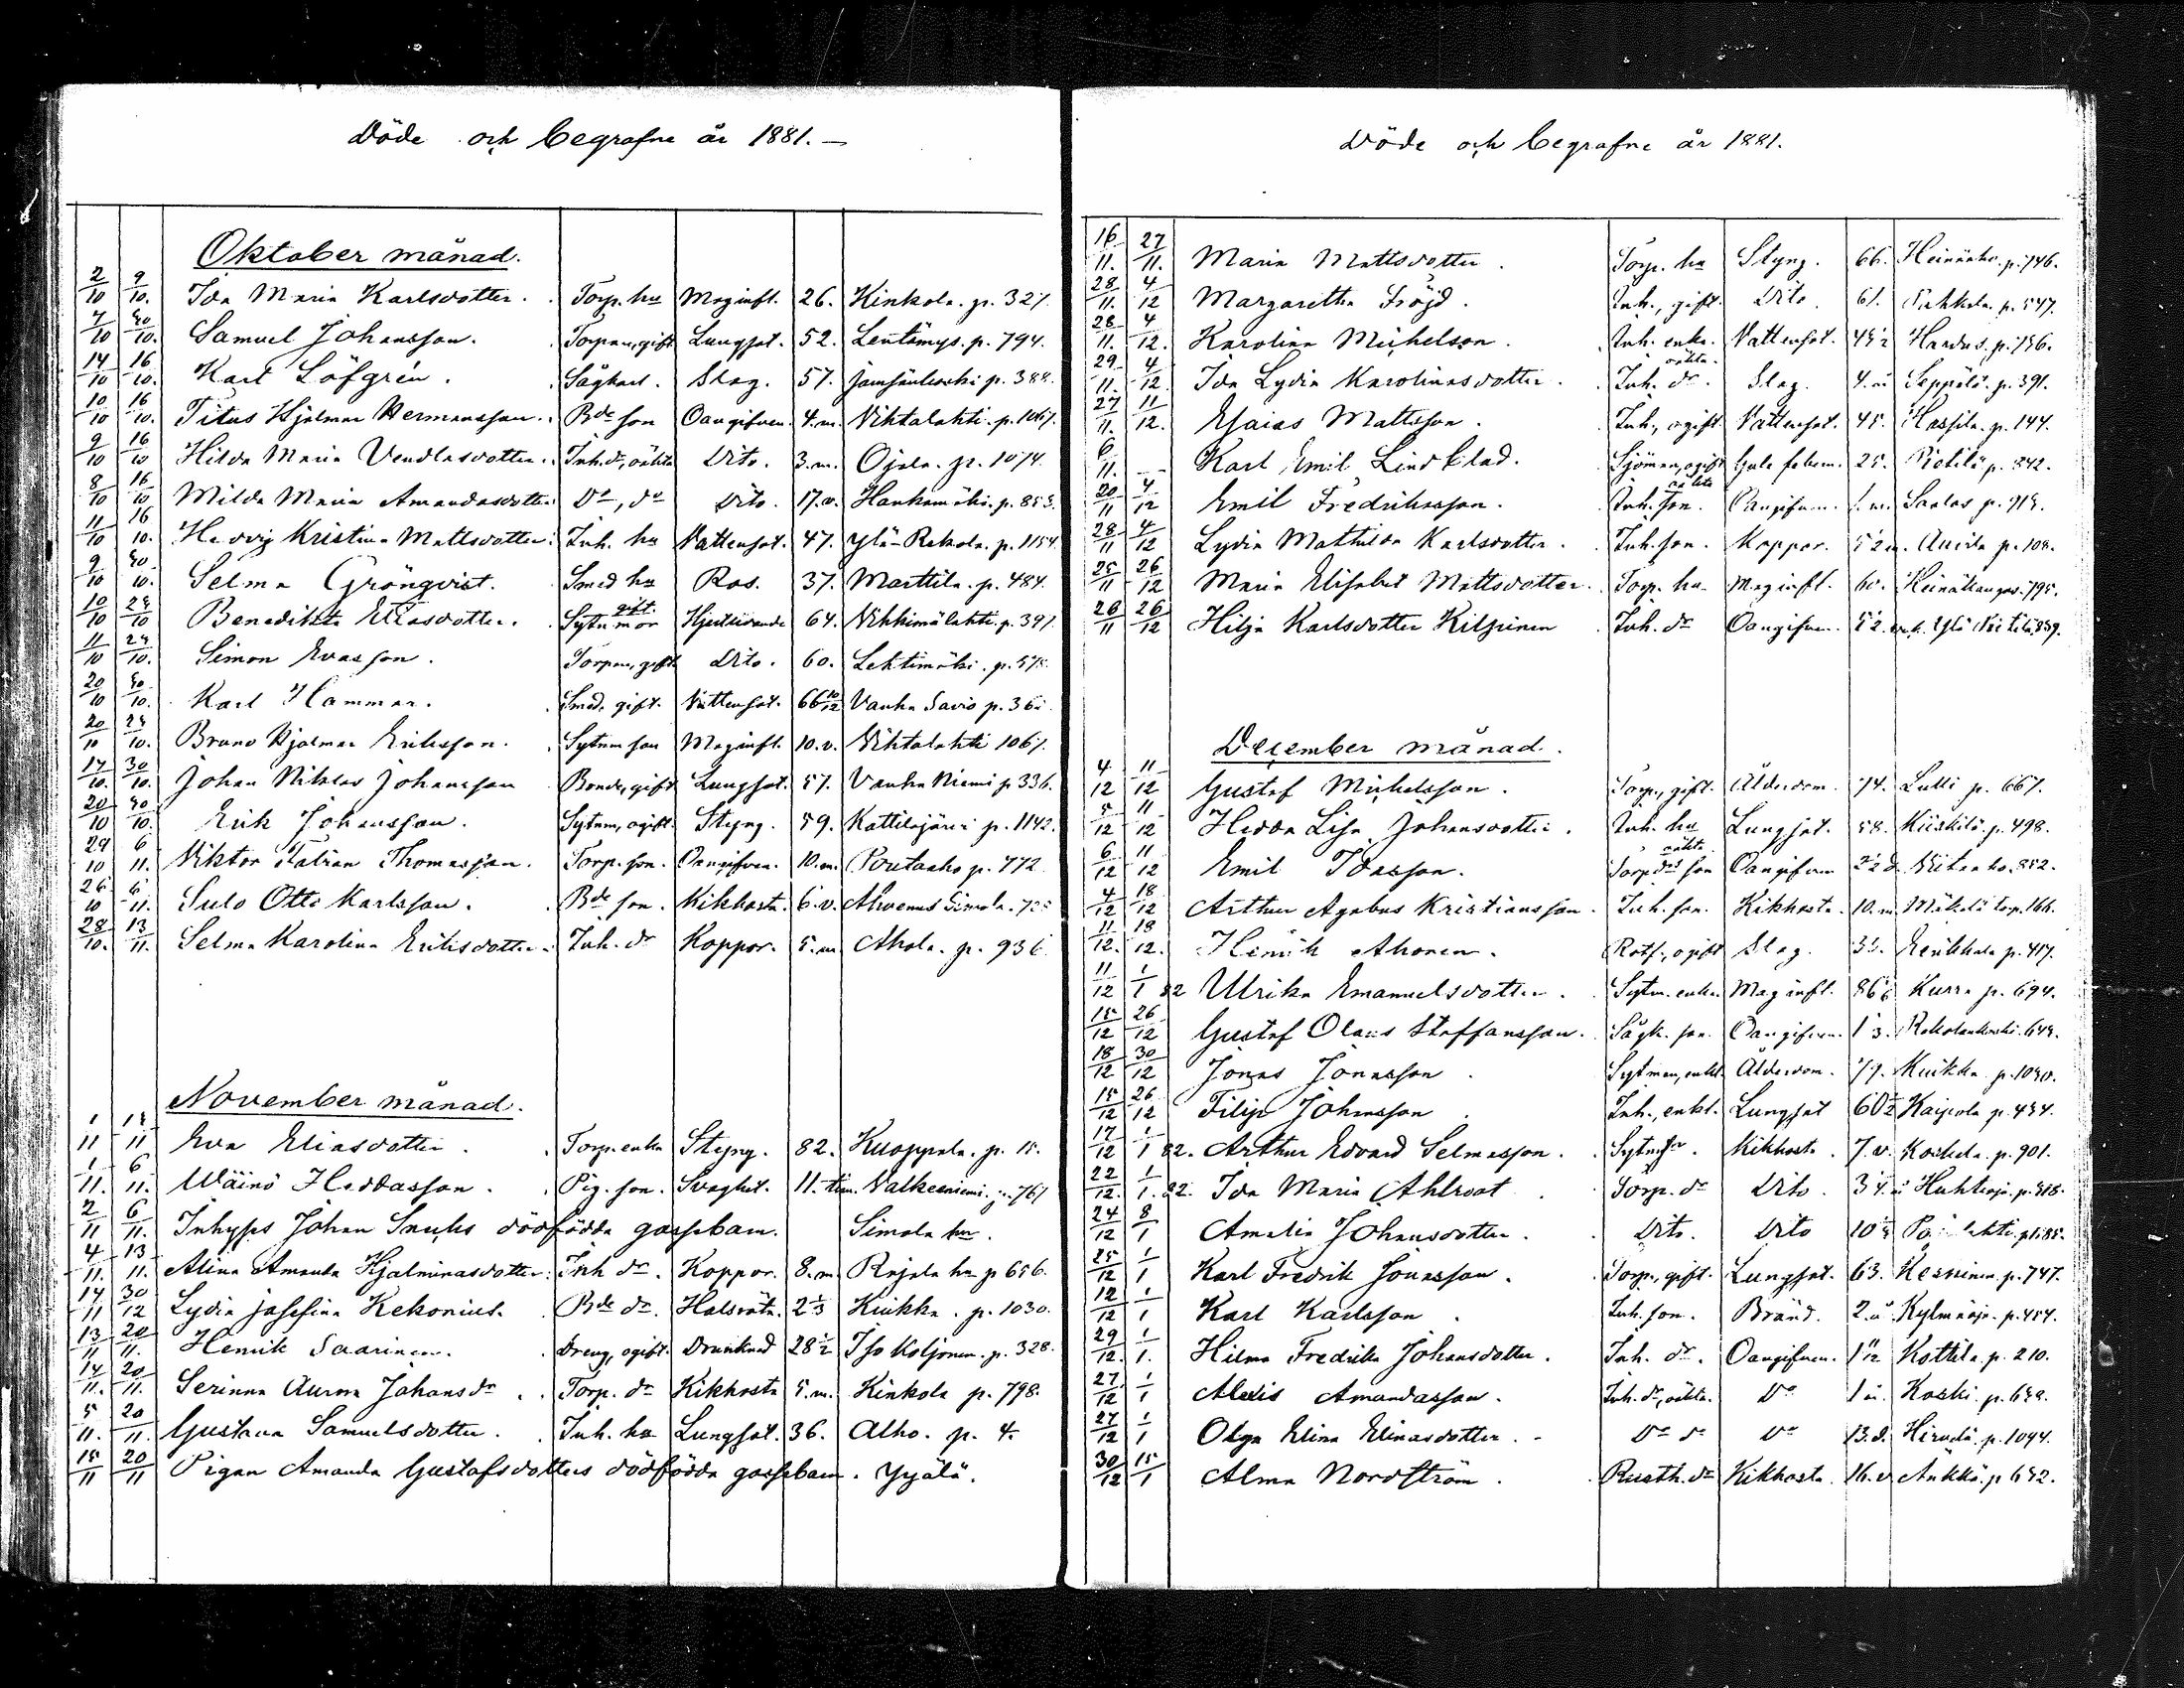 Döde och begrafne år 1881. —
Oktober månad.
2/10 9/10. Ida Maria Karlsdotter. Torp. hu Maginfl. 26. Kinkola. p. 327.
7/10 30/10. Samuel Johansson. Torpare, gift Lungsot. 52. Lentämys. p. 794.
14/10 16/10. Karl Löfgrén. Sågkarl. Slag. 57. p. 388.
10/10 16/10. Titus Hjalmar Hermansson. Bde son Oangifven. 4. m. Vihtalahti. p. 1067.
9/10 16/10 Hilda Maria Vendlasdotter. Inh. dr, oäkta Dito. 3. m. Ojala. p. 1074.
8/10 16/10 Milda Maria Amandasdotter Do, do Dito. 17. v. Hankamäki. p. 853.
11/10 16/10. Hedvig Kristina Mattsdotter. Inh. hu Vattensot. 47. Ylä-Rekola. p. 1154
9/10 30/10. Selma Grönqvist. Smed hu Ros. 37. Marttila. p. 484.
10/10 23/10 Benedikta Eliasdotter. Sytn mor gift. Hjertlidande 64. Vihkimälahti. p. 397.
11/10 23/10. Simon Evasson. Torpare, gift Dito. 60. Lehtimäki. p. 578.
20/10 30/10. Karl Hammar. Smed, gift. Vattensot. 66 10/12 Vanha Savio p. 361.
20/10 23/10. Bruno Hjalmar Eriksson. Sytnm son Maginfl. 10. v. Vihtalahti 1067.
17/10. 30/10. Johan Niklas Johansson Bonde, gift Lungsot. 57. Vanha Niemi p. 336.
20/10 30/10. Erik Johansson. Sytnm, ogift. Styng. 59. Kattilajärvi p. 1142.
29/10 6/11. Viktor Fabian Thomasson. Torp. son. Oangifven. 10. m. Poutaaho p. 772.
26/10 6/11. Sulo Otto Karlsson. Bde son. Kikhosta. 6. v. Ahvenus Simola.
28/10. 13/11. Selma Karolina Eriksdotter. Inh. dr Koppor. 5. m. Ahola. p. 936.
November månad.
1/11 13/11 Eva Eliasdotter. Torp. enka Styng. 82. Kuoppala. p. 15.
1/11. 6/11. Wäinö Heddasson. Pig. son. Svaghet. 11. tim. Valkeeniemi. p. 767
2/11 6/11. Inhyses Johan Snuhs dödfödda gossebarn. Simola hm.
4/11. 13/11. Alina Amanda Hjalminasdotter. Inh dr. Koppor. 8. m Rajala hm p 656.
14/11 30/12 Lydia Josefina Kekonius. Bde dr. Halsröta. 2 1/3 Kiukka. p. 1030.
13/11 20/11. Henrik Saarinen. Dreng, ogift. Drunknad 28 1/2 Iso Koljonen. p. 328.
14/11. 20/11. Serinna Aurora Johansdr. Torp. dr Kikhosta 5. m. Kinkola p. 798.
5/11. 20/11. Gustava Samuelsdotter. Inh. hu Lungsot. 36. Alho. p. 4.
15/11 20/11 Pigan Amanda Gustafsdotters dödfödda gossebarn. Yijälä.
Döde och begrafne år 1881.
16/11. 27/11. Maria Mattsdotter. Torp. hu Styng. 66. Heinäaho. p. 746.
28/11. 4/12 Margaretha Fröjd. Inh., gift. Dito. 61. p. 547.
28/11. 4/12. Karolina Michelson. Inh. enka. Vattensot. 43 1/2 Hardus. p. 756.
29/11. 4/12. Ida Lydia Karolinasdotter. Inh. dr. oäkta. Slag. 4. m Seppälä. p. 391.
27/11. 11/12. Esaias Mattsson. Inh., ogift. Vattensot. 45. Hassila. p. 144.
6/11. - - Karl Emil Lindblad. Sjöman, ogift Gula febern. 25. Piotila p. 842.
20/11 4/12 Emil Fredriksson. Inh. son. oäkta Oangifven. 1. m. Saalas p. 713.
28/11 4/12 Lydia Mathilda Karlsdotter. Inh. son. Koppor. 5 1/2 m. Anida p. 108.
25/11 26/12 Maria Elisabet Mattsdotter. Torp. hu. Maginfl. 60. Heinäkangas. 795.
26/11 26/12 Hilja Karlsdotter Kilpinen Inh. dr Oangifven. 5 1/2.
December månad.
4/12 11/12 Gustaf Michelsson. Torp., gift. Ålderdom. 74. Lutti p. 667.
5/12 11/12 Hedda Lisa Johansdotter. Inh. hu Lungsot. 58. Kiiskilä. p. 498.
6/12 11/12 Emil Idasson. Torp drs son oäkta Oangifven 2 1/2 d. 852.
4/12 18/12 Arthur Agabus Kristiansson. Inh. son. Kikhosta. 10. m. Mäkelä to p. 166.
11/12. 18/12. Henrik Ahonen. Rotf., ogift Slag. 31. Eerikkala p. 417.
11/12 1/1 82 Ulrika Emanuelsdotter. Sytn. enka. Maginfl. 86 1/6 Kurra p. 694.
15/12 26/12 Gustaf Olaus Staffansson. Sågk. son. Oangifven. 1 1/3. Rekolankoski. 643.
18/12 30/12 Jonas Jonasson. Sytman, enkl. Ålderdom. 79. Kiukka p. 1030.
15/12 26/12 Filip Johansson. Inh., enkl. Lungsot 60 1/2 Kaipola p. 434.
17/12 1/1 82. Arthur Edvard Selmasson. Sytn dr. Kikhosta. 7. v. Koskela p. 901.
22/12. 1/1. 82. Ida Maria Ahlroot Torp. dr Dito. 3 1/4. Huhtinja p. 318.
24/12 8/1 Amalia Johansdotter. Dito. Dito 10
25/12 1/1 Karl Fredrik Jonasson. Torp., gift. Lungsot. 63. Keskinen. p. 747.
12/12 1/1 Karl Karlsson. Inh. son. Bränd. 2. å. Kylmäoja. p. 454.
29/12. 1/1. Hilma Fredrika Johansdotter. Inh. dr. Oangifven. 1 11/12 Kottila p. 210.
27/12 1/1 Alexis Amandasson. Inh. dr, oäkta. Do 1 m. Koski. p. 639.
27/12 1/1 Olga Elina Elinasdotter. Do do Do 13. d. Hirvelä. p. 1044.
30/12 15/1 Alma Nordström. Rusth. dr Kikhosta. 16. d. Aukkö. p 632.